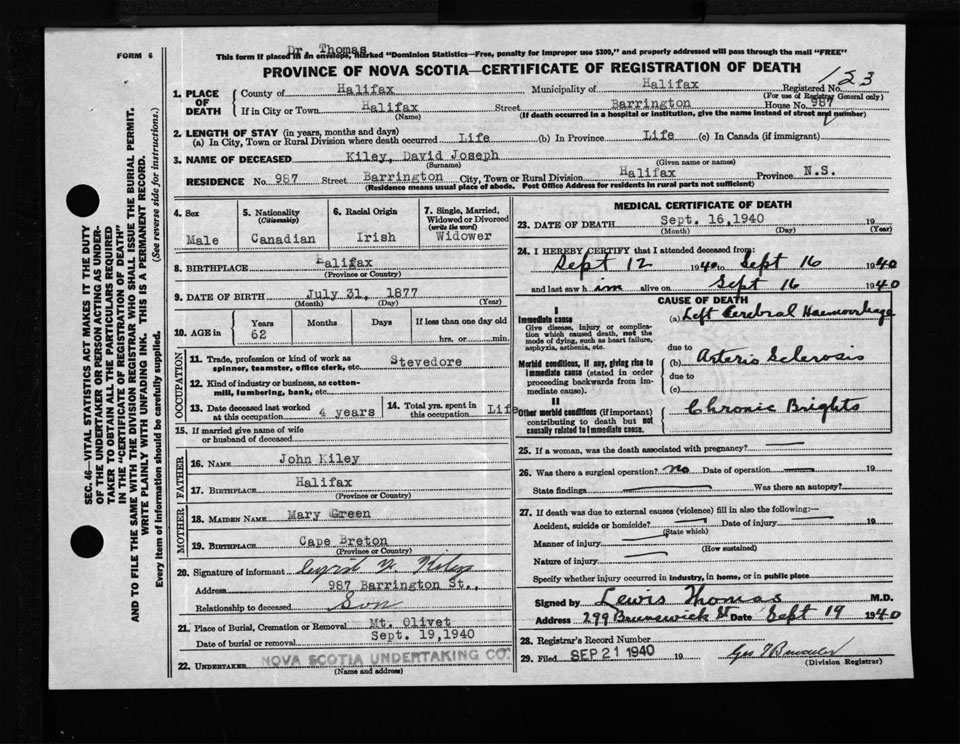 FORM 6
Dr. Thomas
This form if placed in an envelope, marked "Dominion Statistics—Free, penalty for improper use $300," and properly addressed will pass through the mail "FREE"
PROVINCE OF NOVA SCOTIA—CERTIFICATE OF REGISTRATION OF DEATH
123
SEC. 46—VITAL STATISTICS ACT MAKES IT THE DUTY
OF THE UNDERTAKER OR PERSON ACTING AS UNDER-
TAKER TO OBTAIN ALL THE PARTICULARS REQUIRED
IN THE "CERTIFICATE OF REGISTRATION OF DEATH"
AND TO FILE THE SAME WITH THE DIVISION REGISTRAR WHO SHALL ISSUE THE BURIAL PERMIT.
WRITE PLAINLY WITH UNFADING INK. THIS IS A PERMANENT RECORD.
Every item of information should be carefully supplied. (See reverse side for instructions.)
1. PLACE OF DEATH
County of Halifax Municipality of Halifax Registered No.
(For use of Registrar General only)
If in City or Town Halifax Street Barrington House No. 987
(Name) (If death occurred in a hospital or institution, give the name instead of street and number)
2. LENGTH OF STAY (in years, months and days)
(a) In City, Town or Rural Division where death occurred Life (b) In Province Life (c) In Canada (if immigrant)
3. NAME OF DECEASED Kiley, David Joseph
(Surname) (Given name or names)
RESIDENCE No. 987 Street Barrington City, Town or Rural Division Halifax Province N.S.
(Residence means usual place of abode. Post Office Address for residents in rural parts not sufficient)
4. Sex Male
5. Nationality (Citizenship) Canadian
6. Racial Origin Irish
7. Single, Married, Widowed or Divorced (write the word) Widower
8. BIRTHPLACE Halifax
(Province or Country)
9. DATE OF BIRTH July 31, 1877
(Month) (Day) (Year)
10. AGE in Years 62 Months Days If less than one day old hrs. or min.
OCCUPATION
11. Trade, profession or kind of work as spinner, teamster, office clerk, etc. Stevedore
12. Kind of industry or business, as cotton-mill, lumbering, bank, etc.
13. Date deceased last worked at this occupation 4 years
14. Total yrs. spent in this occupation Life
15. If married give name of wife or husband of deceased
FATHER
16. NAME John Kiley
17. BIRTHPLACE Halifax
(Province or Country)
MOTHER
18. MAIDEN NAME Mary Green
19. BIRTHPLACE Cape Breton
(Province or Country)
20. Signature of informant Cyril Kiley
Address 987 Barrington St.,
Relationship to deceased Son
21. Place of Burial, Cremation or Removal Mt. Olivet
Date of burial or removal Sept. 19, 1940
22. UNDERTAKER NOVA SCOTIA UNDERTAKING CO.
(Name and address)
MEDICAL CERTIFICATE OF DEATH
23. DATE OF DEATH Sept. 16, 1940 19
(Month) (Day) (Year)
24. I HEREBY CERTIFY that I attended deceased from:
Sept 12 1940 to Sept 16 1940
and last saw him alive on Sept 16 1940
CAUSE OF DEATH
I
Immediate cause (a) Left Cerebral Haemorrhage
Give disease, injury or complica-
tion which caused death, not the
mode of dying, such as heart failure,
asphyxia, asthenia, etc.
due to
Morbid conditions, if any, giving rise to (b) Arterio Sclerosis
immediate cause (stated in order due to
proceeding backwards from im-
mediate cause). (c)
II
Other morbid conditions (if important) Chronic Brights
contributing to death but not
causally related to immediate cause.
25. If a woman, was the death associated with pregnancy?
26. Was there a surgical operation? no Date of operation 19
State findings Was there an autopsy?
27. If death was due to external causes (violence) fill in also the following:—
Accident, suicide or homicide? Date of injury 19
(State which)
Manner of injury
(How sustained)
Nature of injury
Specify whether injury occurred in industry, in home, or in public place
Signed by Lewis Thomas M.D.
Address 299 Brunswick St Date Sept 19 1940
28. Registrar's Record Number
29. Filed SEP 21 1940 19
(Division Registrar)